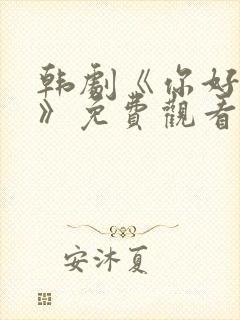 韩劇《你好
》免費觀看
安沐夏